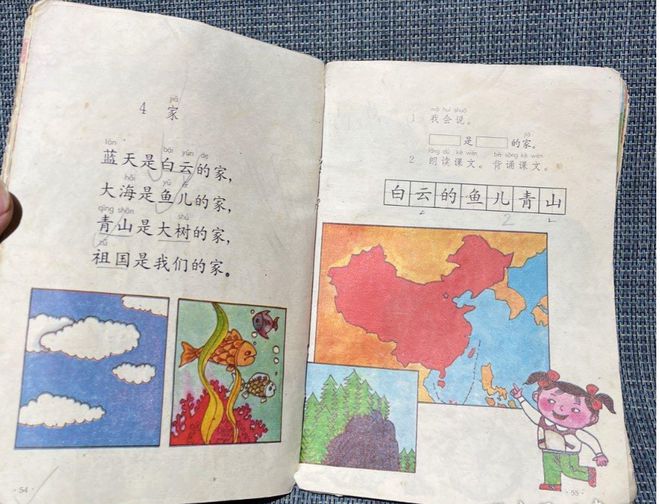 jiā
4 家
lán bái yún de
蓝天是白云的家，
hǎi yú ér
大海是鱼儿的家，
qīng shān shù
青山是大树的家，
zǔ
祖国是我们的家。
· 54 ·
wǒ huì shuō
1 我会说。
jiā
是 的家。
lǎng dú kè wén bèi sòng kè wén
2 朗读课文。背诵课文。
白云的鱼儿青山
2 2 2
· 55 ·